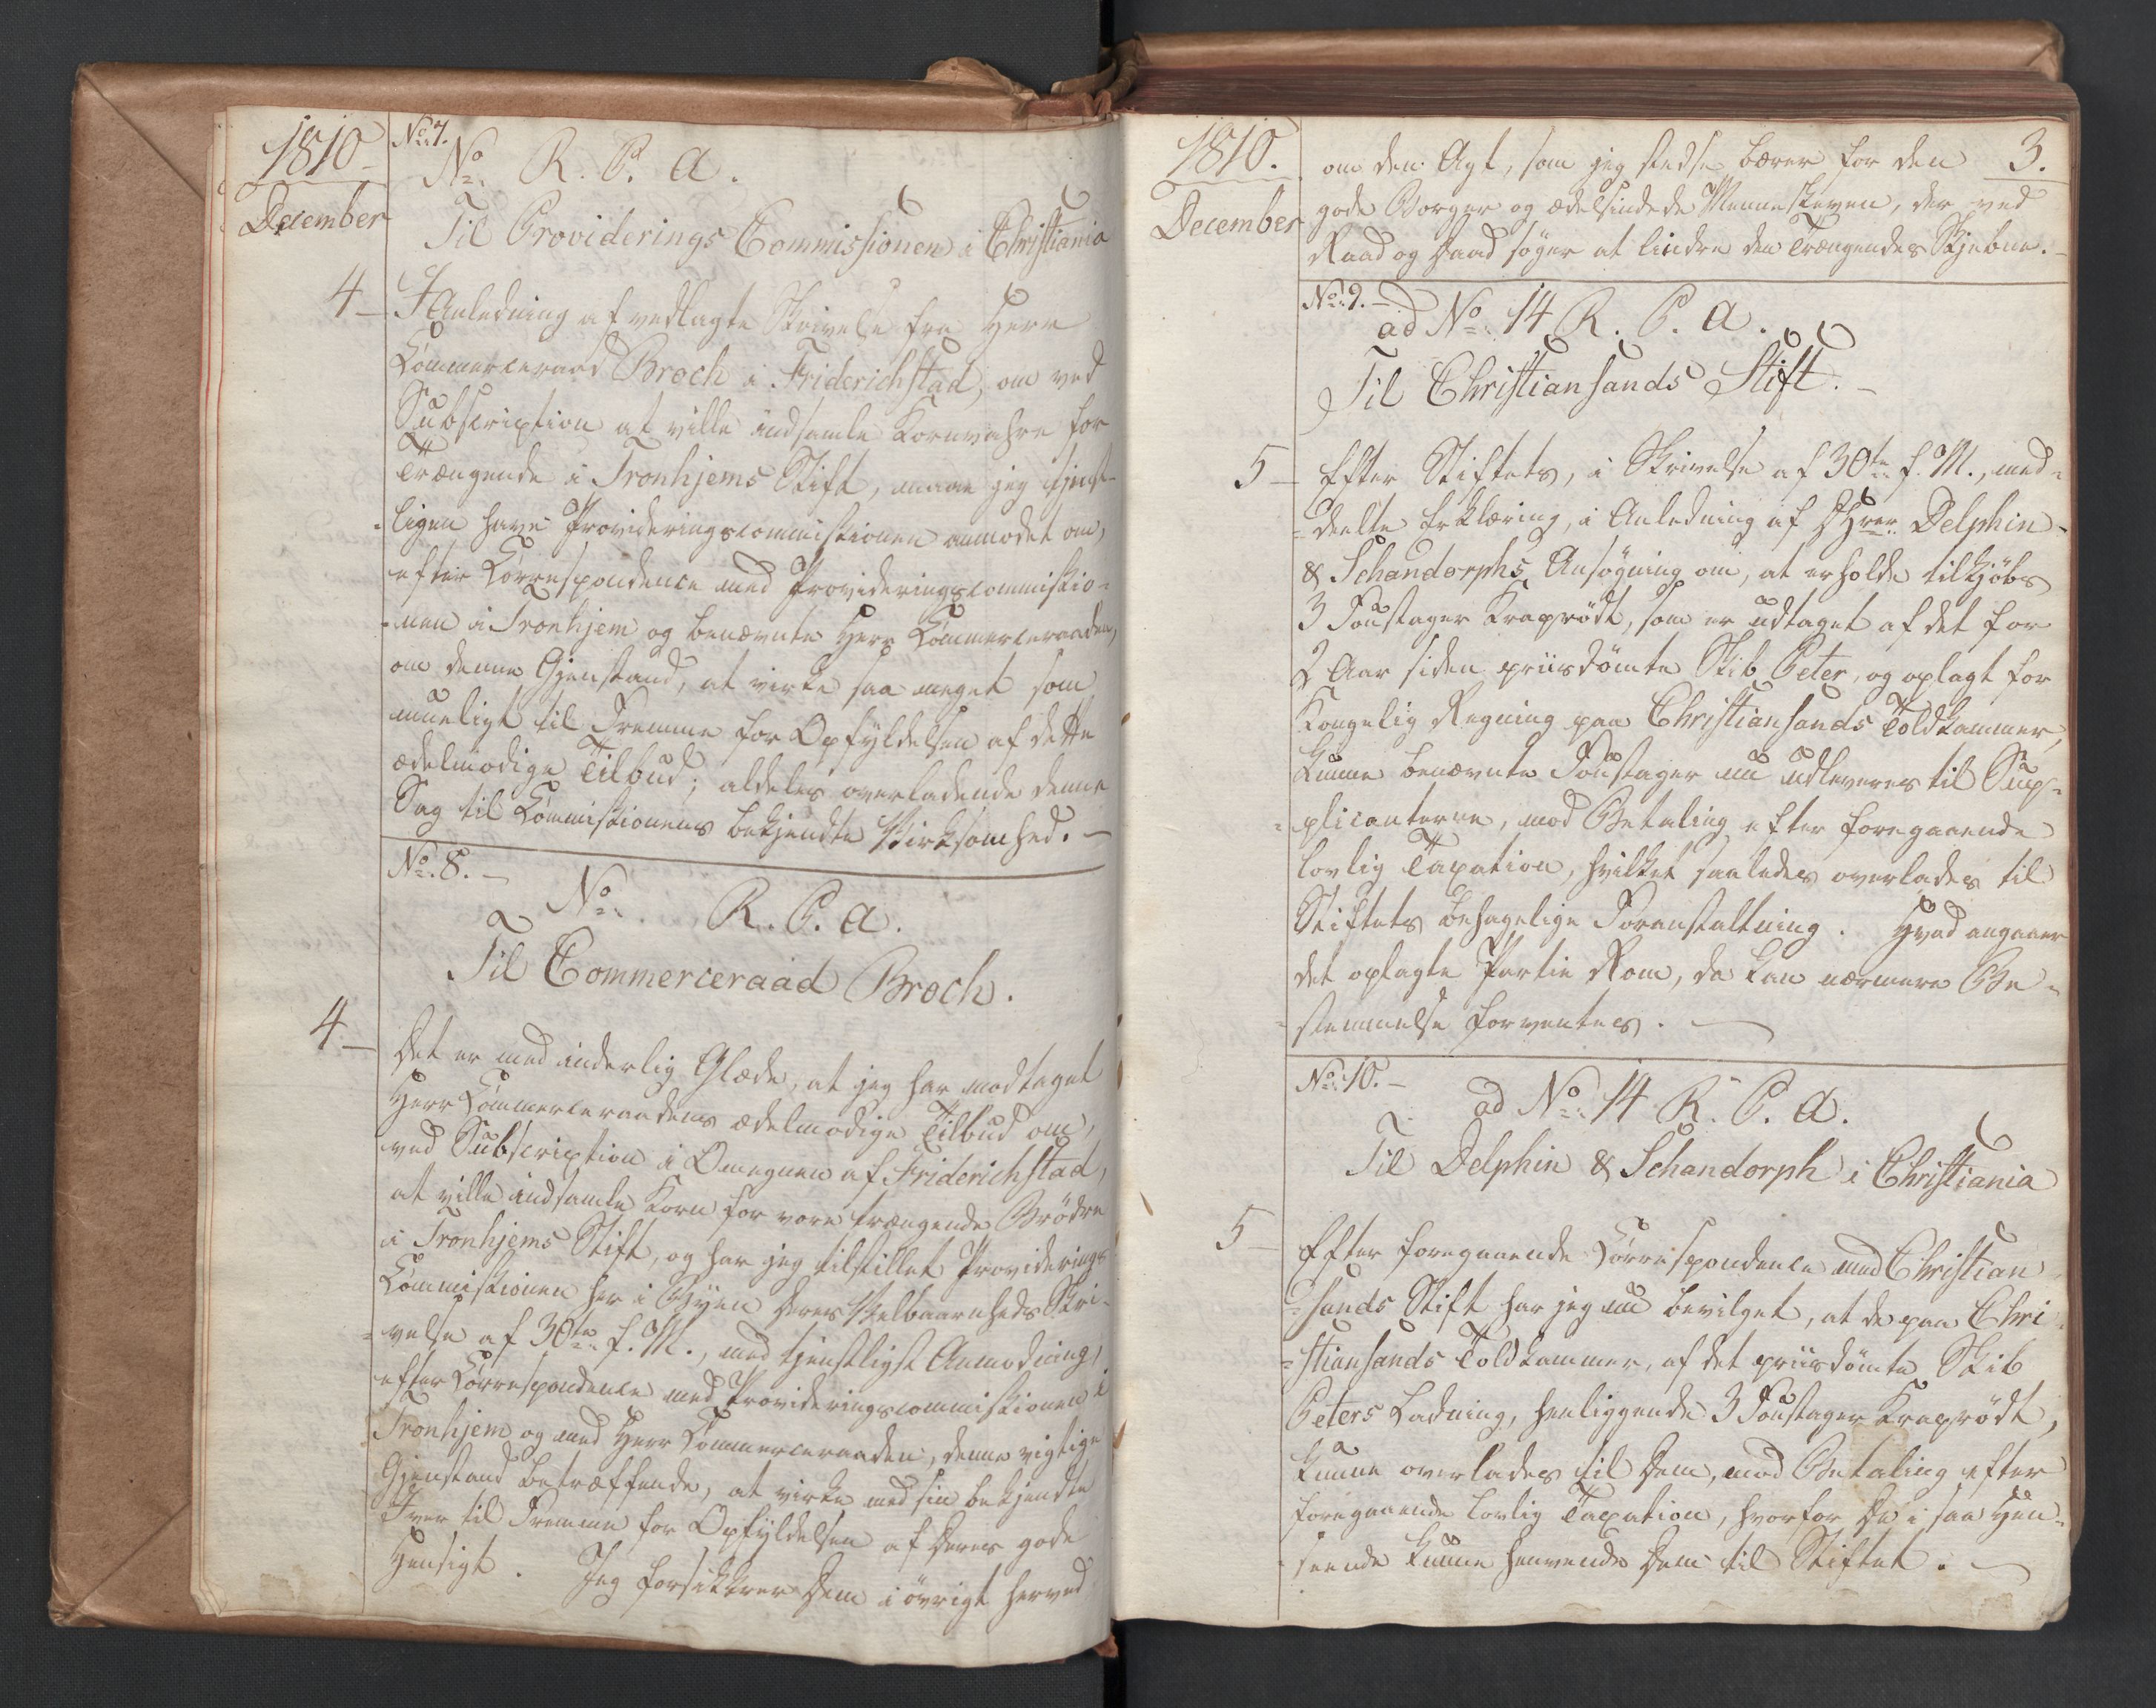 1810
December
No: 7.
No: R. P. A.
Til Providerings Commissionen i Christiania
4 –
I Anledning af vedlagte Skrivelse fra Herr
Commerceraad Broch i Friderichstad, om ved
Subscription at ville indsamle Kornvahre for
Trængende i Tronhjems Stift, maae jeg tjenst-
ligen have Provideringscommissionen anmodet om,
efter Correspondence med Provideringscommissio-
nen i Tronhjem og benævnte Herr Commerceraaden,
om denne Gjenstand, at virke saa meget som
mueligt til Fremme for Opfyldelsen af dette
ædelmodige Tilbud; aldeles overladende denne
Sag til Commissionens bekjendte Virksomhed. –
No: 8. –
No: R. P. A.
Til Commerceraad Broch.
4 –
Det er med inderlig Glæde, at jeg har modtaget
Herr Commerceraadens ædelmodige Tilbud om,
ved Subscription i Omegnen af Friderichstad,
at ville indsamle Korn for vore trængende Brödre
i Tronhjems Stift, og har jeg tilstillet Providerings
Commissionen her i Byen Deres Velbaarenheds Skri-
velse af 30te f. M., med tjenstligst Anmodning,
efter Correspondence med Provideringscommissionen i
Tronhjem og med Herr Commerceraaden, denne vigtige
Gjenstand betræffende, at virke med sin bekjendte
Iver til Fremme for Opfyldelsen af Deres gode
Hensigt. Jeg forsikkrer Dem i övrigt herved
1810.
December
3.
om den Agt, som jeg stedse bærer for den
gode Borger og ædelsindede Menneskeven, der ved
Raad og Daad söger at lindre den Trængendes Skjebne. –
No: 9. –
ad No: 14 R. P. A.
Til Christiansands Stift. –
5 –
Efter Stiftets, i Skrivelse af 30te f. M., med-
deelte Erklæring, i Anledning af DHrr. Delphin
& Schandorphs Ansögning om, at erholde tilkjöbs
3 Foustager Kraprödt, som er udtaget af det for
2 Aar siden priisdömte Skib Peter, og oplagt for
Kongelig Regning paa Christiansands Toldkammer,
kunne benævnte Foustager nu udleveres til Sup-
plicanterne, mod Betaling efter foregaaende
lovlig Taxation, hvilket saaledes overlades til
Stiftets behagelige Foranstaltning. Hvad angaaer
det oplagte Partie Rom, da kan nærmere Be-
stemmelse forventes. –
No: 10. –
ad No: 14 R. P. A.
Til Delphin & Schandorph i Christiania
5 –
Efter foregaaende Correspondence med Christian
sands Stift har jeg nu bevilget, at de paa Chri-
stiansands Toldkammer, af det priisdömte Skib
Peters Ladning, henliggende 3 Foustager Kraprödt,
kunne overlades til Dem, mod Betaling efter
foregaaende lovlig Taxation, hvorfor De i saa Hen-
seende kunne henvende Dem til Stiftet. –